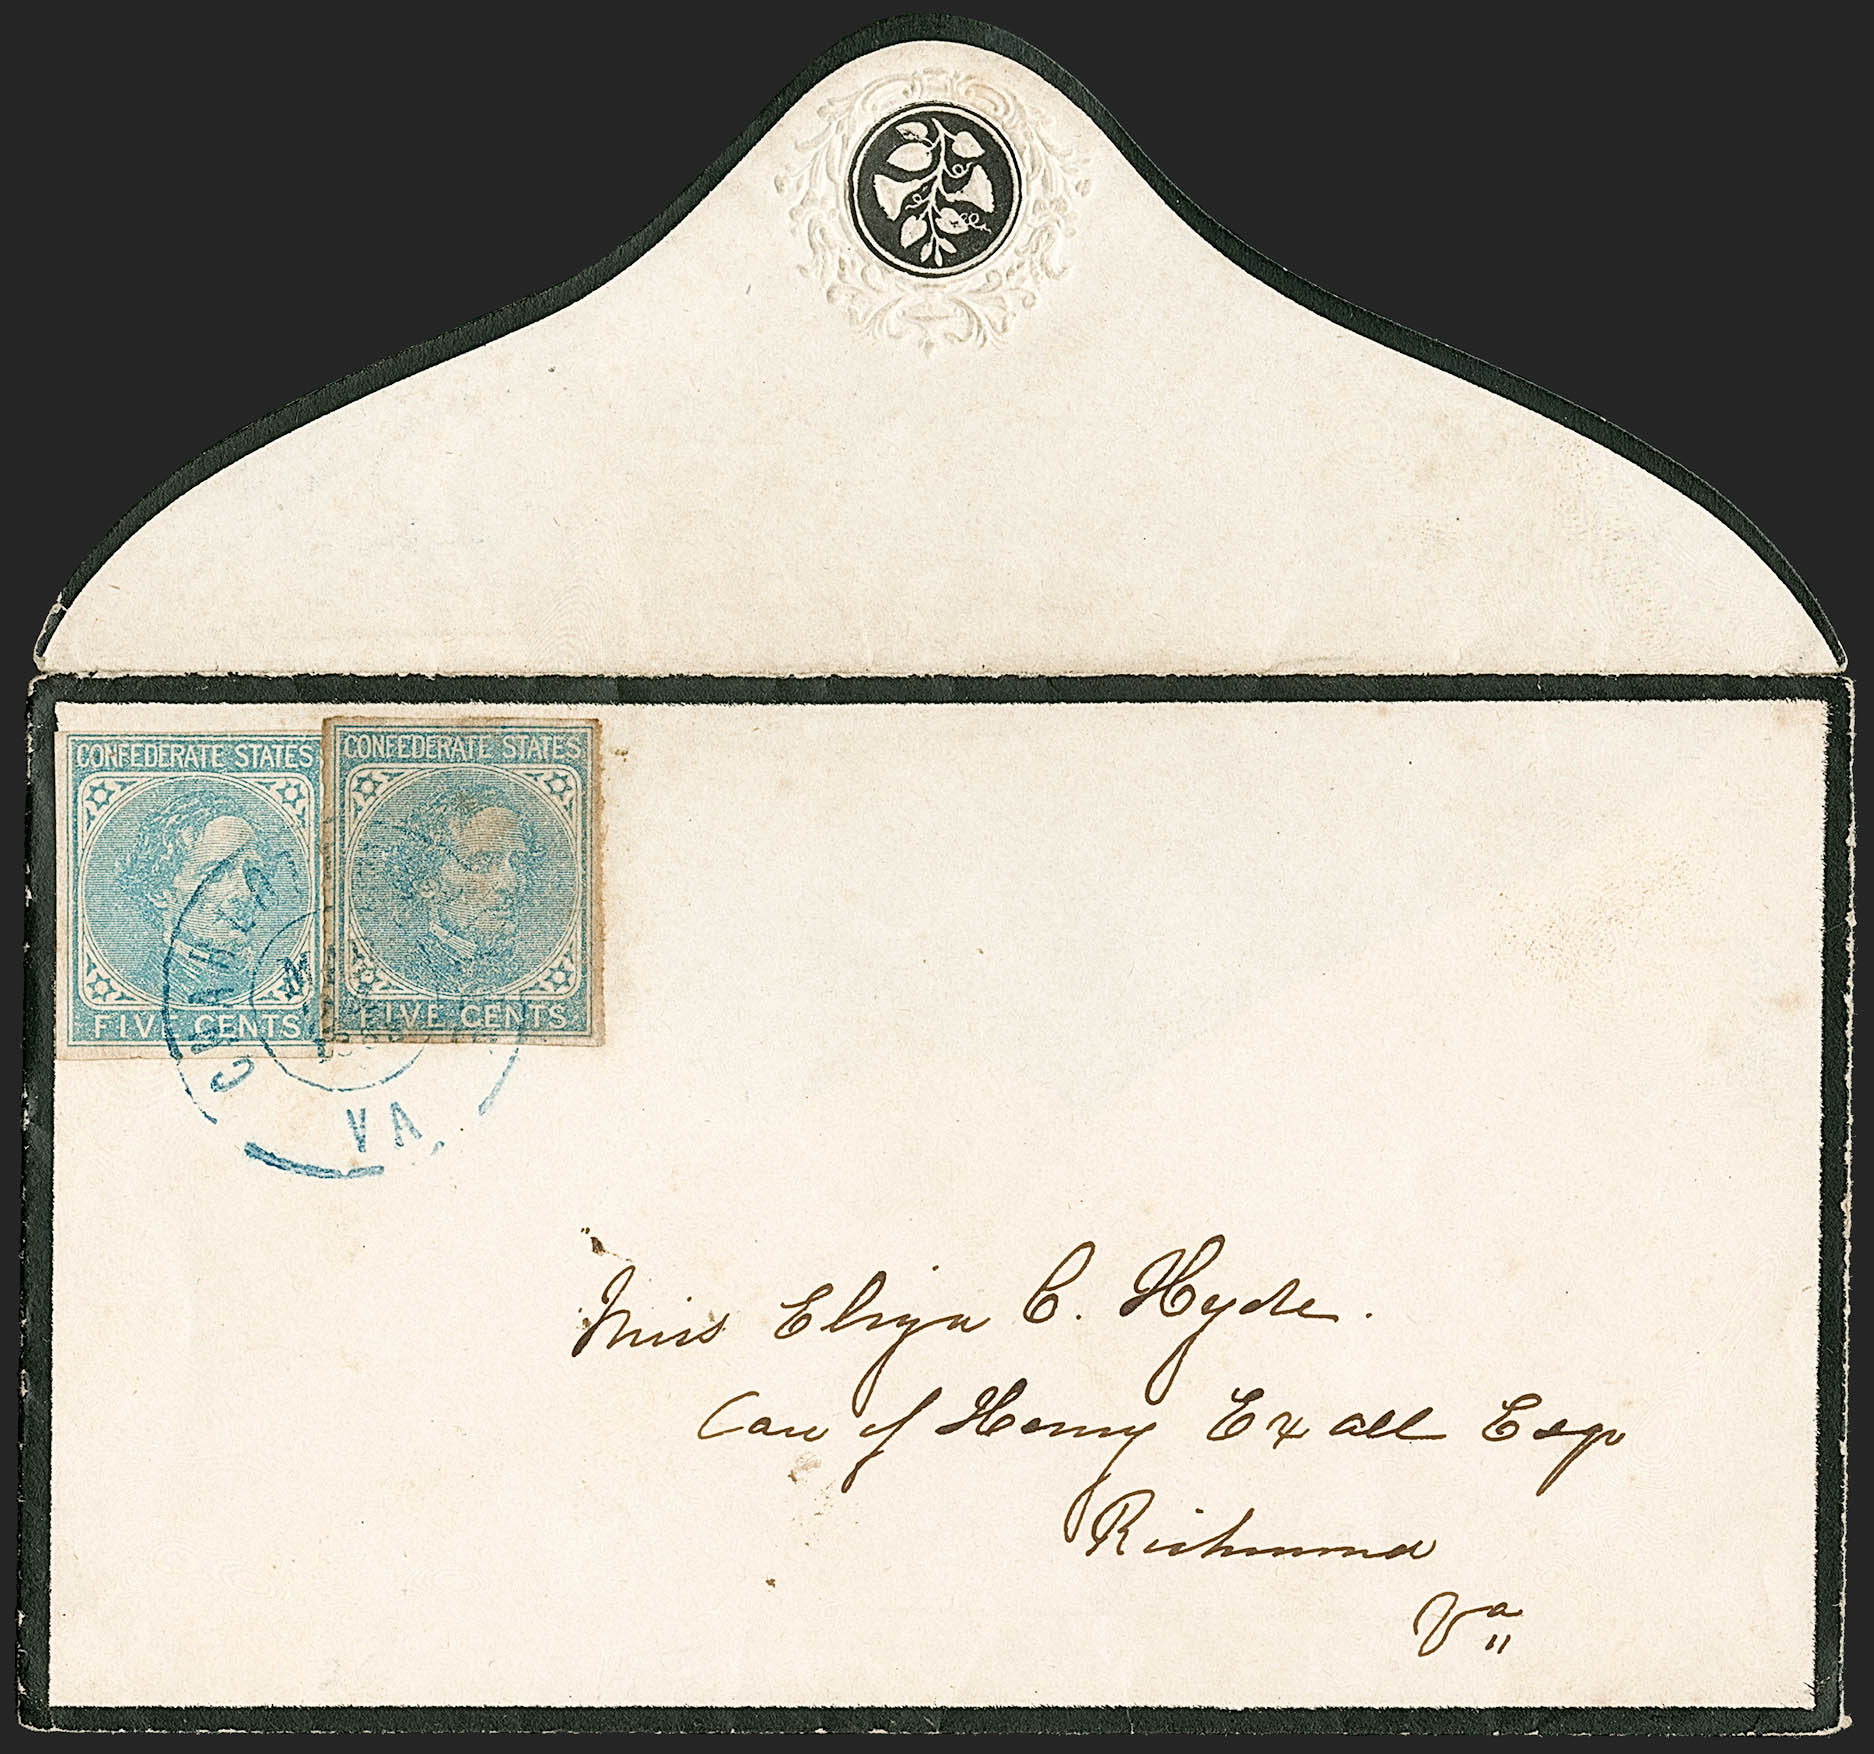 CONFEDERATE STATES
FIVE CENTS
CONFEDERATE STATES
FIVE CENTS
VA.
Miss Eliza C. Hyde.
Care of Henry Exall Esqr
Richmond
Va